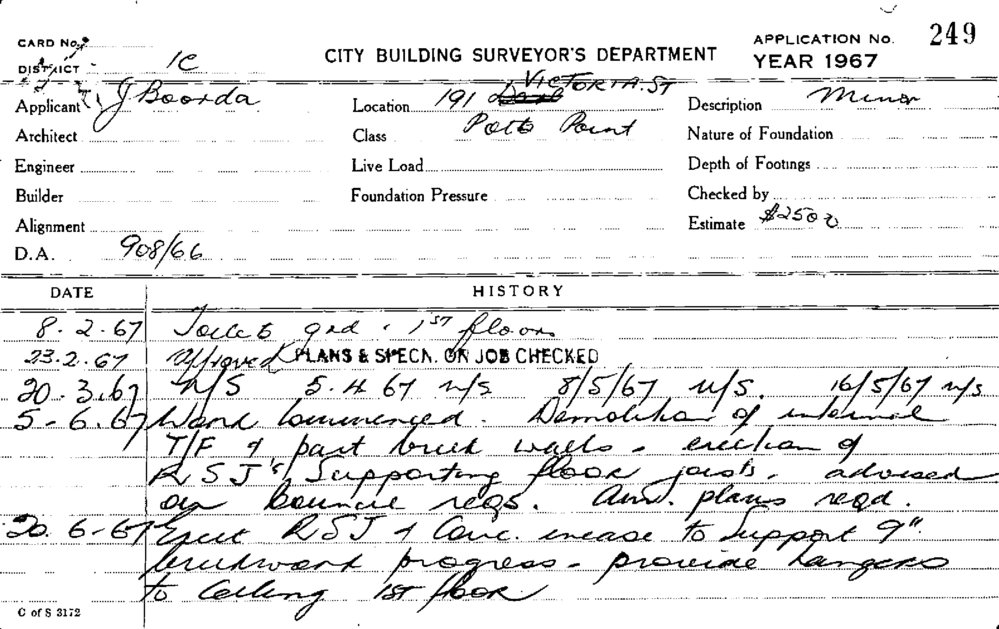 CARD No.
DISTRICT 1C
CITY BUILDING SURVEYOR'S DEPARTMENT
APPLICATION No. 249
YEAR 1967
Applicant J Boorda
Location 191 VICTORIA. ST
Description Minor
Architect
Class Potts Point
Nature of Foundation
Engineer
Live Load
Depth of Footings
Builder
Foundation Pressure
Checked by
Alignment
Estimate $2500
D.A. 908/66
DATE HISTORY
8.2.67 Toilets grd. 1ST floor
23.2.67 Approved PLANS & SPECN. ON JOB CHECKED
20.3.67 N/S 5.4.67 n/s 8/5/67 n/S. 16/5/67 n/s
5-6.67 Work Commenced. Demolition of internal
T/F & part brick walls - erection of
RSJ's Supporting floor joists. advised
on council reqs. Am. plans reqd.
20.6-67 Erect RSJ & Conc. encase to Support 9"
brickwork progress - provide hangers
to Ceiling 1ST floor
C of S 3172